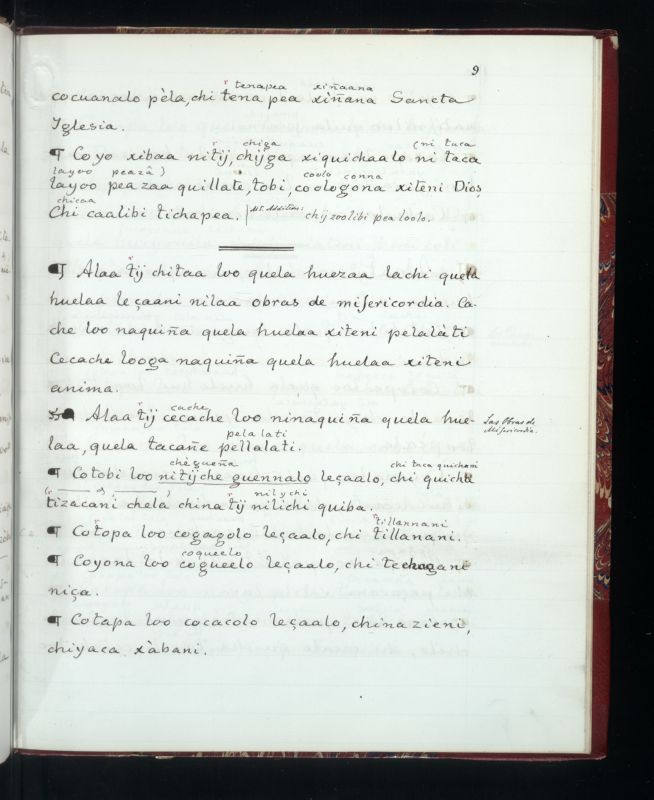 9
tenapea xiñaana
cocuanalo pèla, chi tena pea xìñana Sancta
Iglesia.
r chiga (ni taca
¶ Coyo xibaa nitij, chijga xiquichaalo ni taca
layoo peazâ) coolo conna
layoo pea zaa quillate, tobi, coologona xiteni Dios,
chicaa
Chi caalibi tichapea. | Mt. Additions: chij zoolibi pea loolo.
r
¶ Alaa tij chitaa loo quela huezaa lachi quela
huelaa leçaani nilaa obras de misericordia. Ca-
che loo naquiña quela huelaa xiteni pelalàti
Cecache looga naquiña quela huelaa xiteni
anima.
r cache
Alaa tij cecache loo ninaquiña quela hue-
Las Obras de
Misericordia.
pelalati
laa, quela tacañe pellalati.
chègueña chi taca quichani
¶ Cotobi loo nitijche guennalo leçaalo, chi quicha
r nilychi
tizacani chela china tij nilichi quiba.
r tillannani
¶ Cotopa loo cogagolo leçaalo, chi tillanani.
coqueelo
¶ Coyona loo cogueelo leçaalo, chi
niça.
¶ Cotapa loo cocacolo leçaalo, china zieni,
chiyaca xàbani.